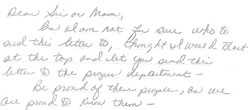 Dear Sir or Mam,
I am not for sure who to
send this letter to, thought I would start
at the top and let you send this
letter to the proper department –
Be proud of these people, as we
are proud to know them –